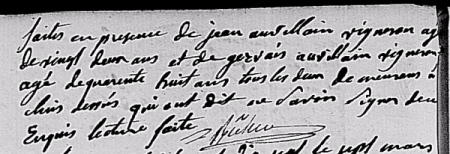 faites en presence de jean auvillain vigneron ag
de vingt deux ans et de gervais auvillain vigneron
agé de quarente huit ans tous les deux demeurans à
dessés qui ont dit ne savoir signer de ce
Enquis lecture faite
mars